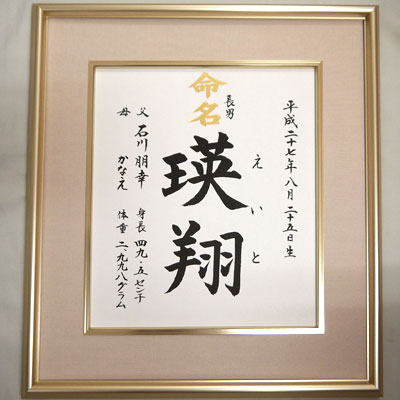 平成二十七年八月二十五日生
命名
長男
瑛翔
えいと
父 石川朋幸
母 かなえ
身長 四九・五センチ
体重 二、九九八グラム